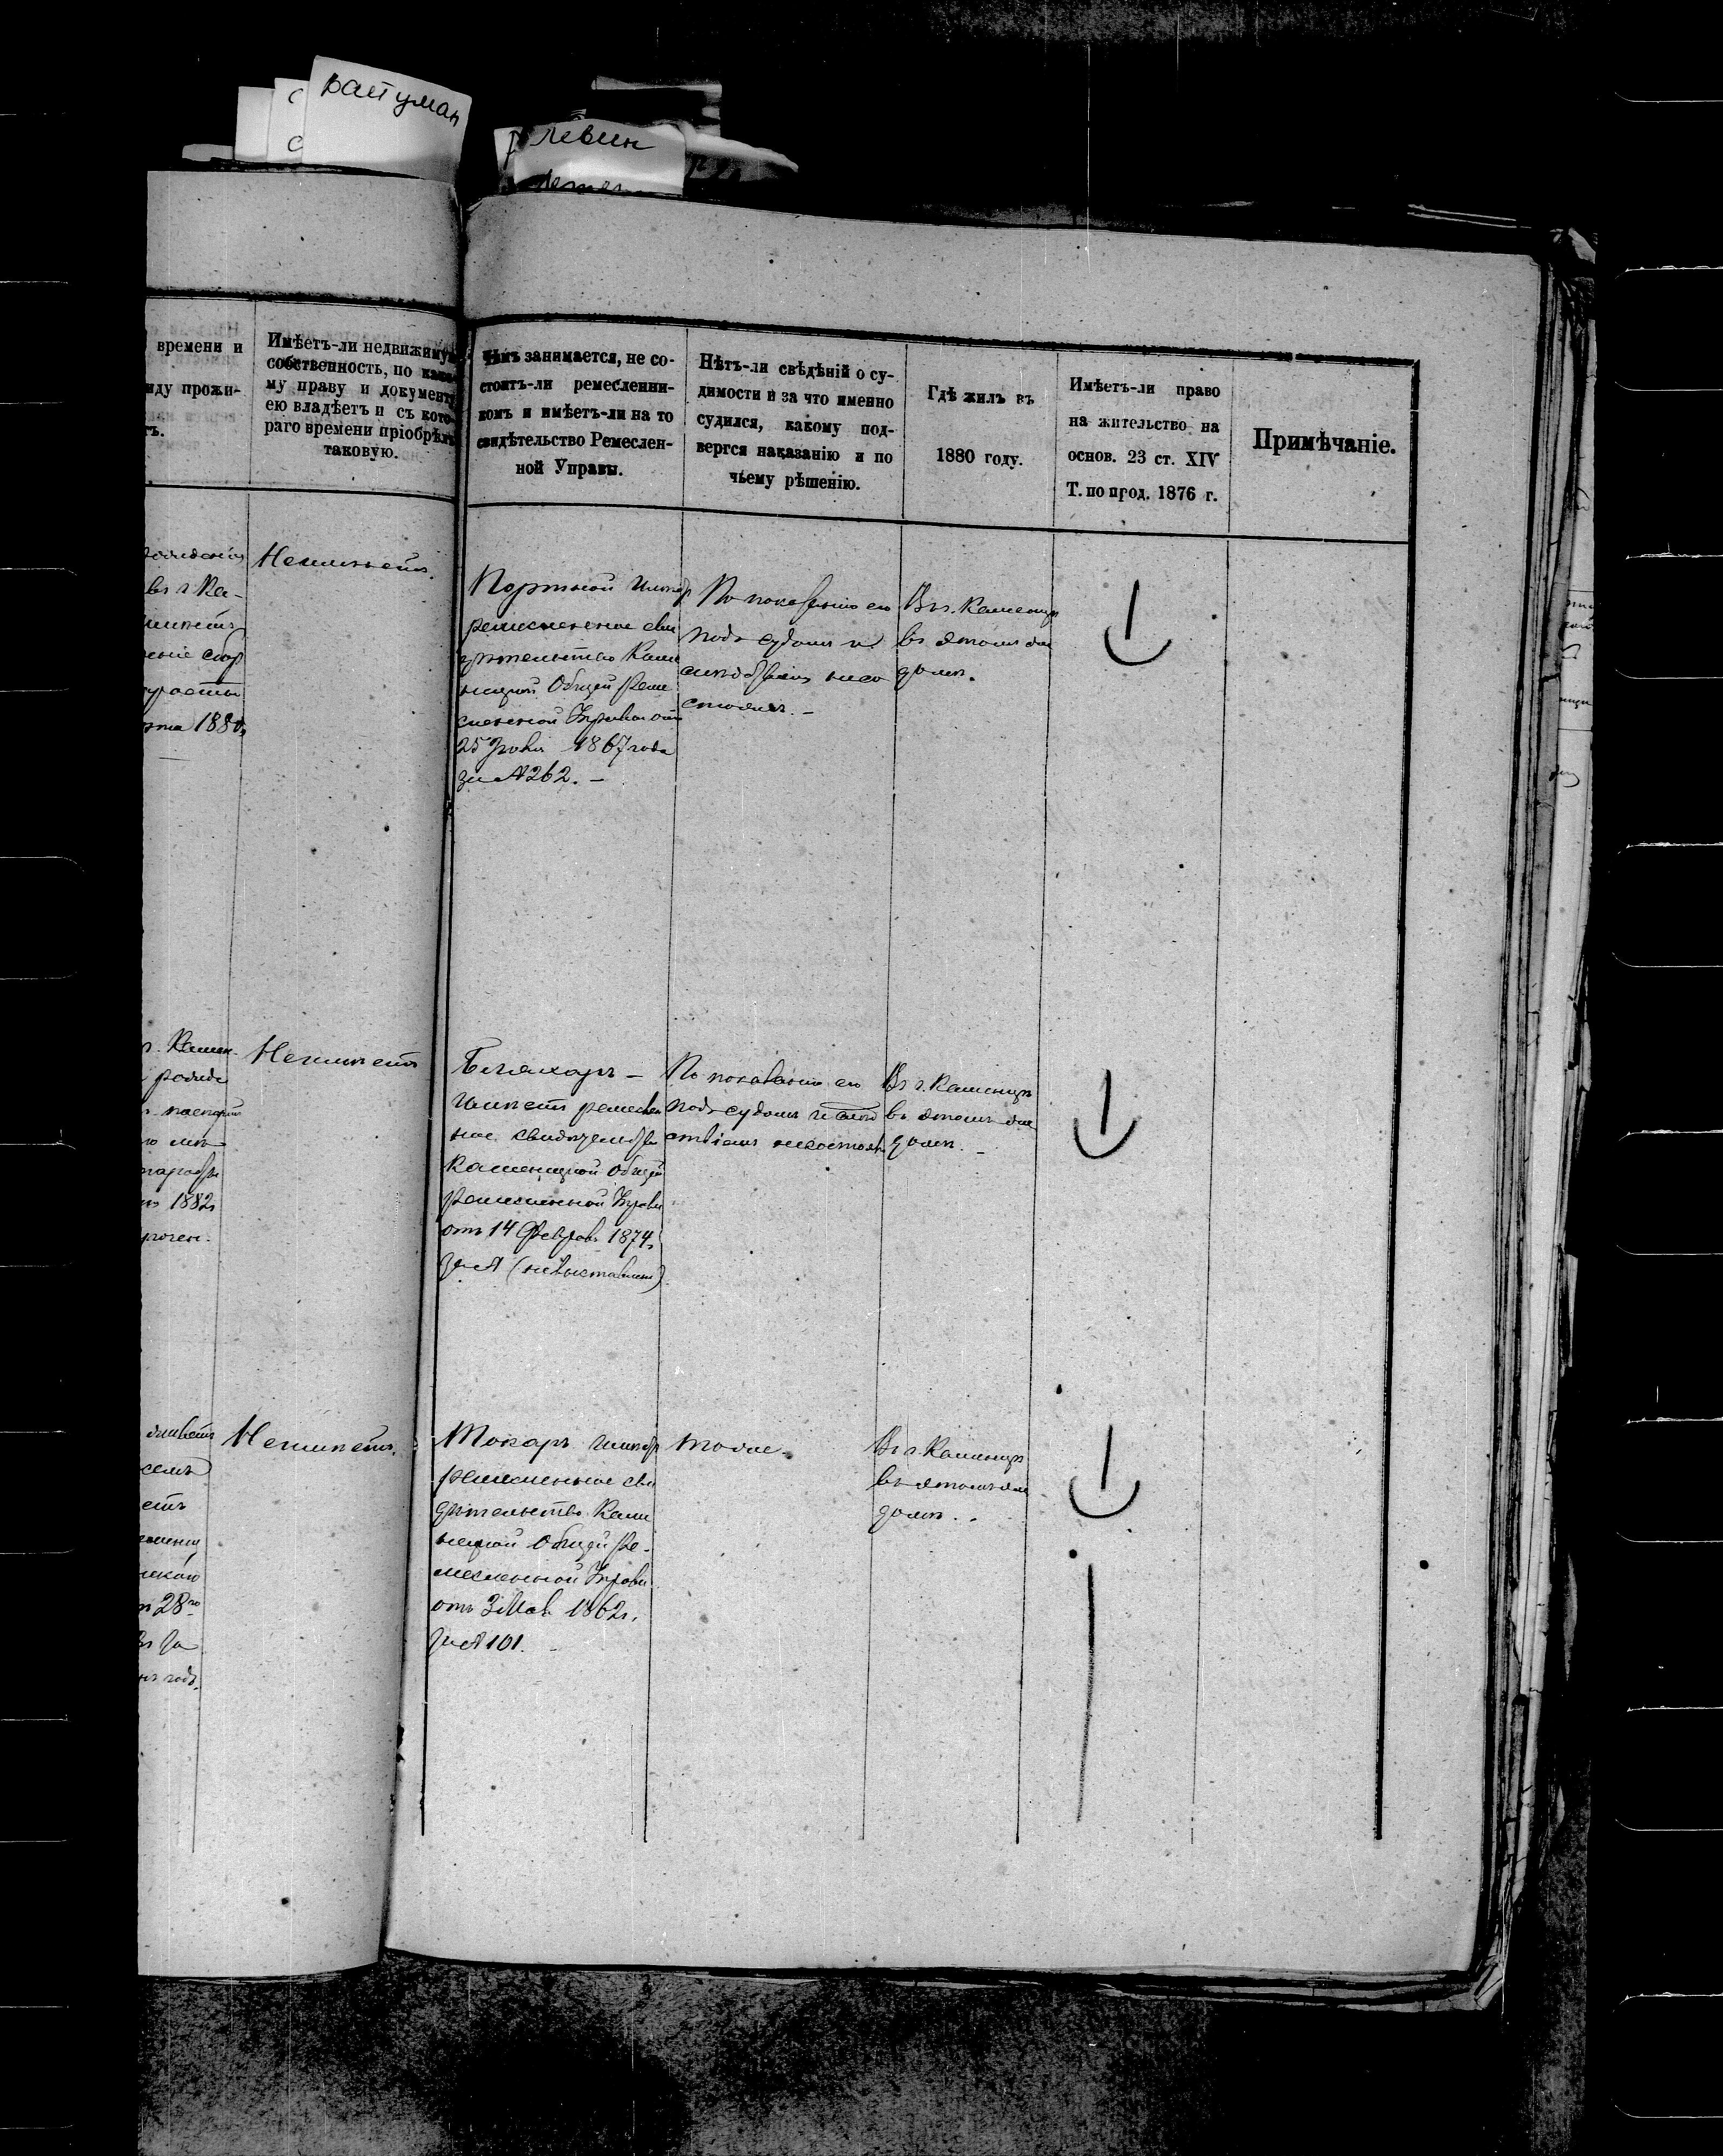 райтман
левин
времени и
иду прожи-
Имѣетъ-ли недвижимую
собственность, по како-
му праву и документу
ею владѣетъ и съ кото-
раго времени пріобрѣлъ
таковую.
Чѣмъ занимается, не со-
стоитъ-ли ремесленни-
комъ и имѣетъ-ли на то
свидѣтельство Ремеслен-
ной Управы.
Нѣтъ-ли свѣдѣній о су-
димости и за что именно
судился, какому под-
вергся наказанію и по
чьему рѣшенію.
Гдѣ жилъ въ
1880 году.
Имѣетъ-ли право
на жительство на
основ. 23 ст. XIV
Т. по прод. 1876 г.
Примѣчаніе.
въ г. Ка-
1880
Неимѣетъ.
Портной имѣетъ
ремесленное сви
дѣтельство Каме
нецкой Общей Реме
сленной Управы отъ
25 1867 года
за № 262. –
По показанію его
подъ судомъ и
слѣдствіемъ несо
стоялъ. –
Въ г. Каменцѣ
въ этомъ же
домѣ.
г. Камен-
1882
Неимѣетъ
Бляхаръ –
имѣетъ ремеслен
ное свидѣтельство
Каменецкой Общей
Ремесленной Управы
отъ 14 Февраля 1874 г.
за № (невыставленъ)
По показанію его
подъ судомъ и слѣд
ствіемъ несостоялъ
Въ г. Каменцѣ
въ этомъ же
домѣ. –
28го
годъ.
Неимѣетъ.
Токаръ имѣетъ
ремесленное сви
дѣтельство Каме
нецкой Общей Ре-
месленной Управы
отъ 3 Мая 1862 г.
за № 101. –
тоже
Въ г. Каменцѣ
въ этомъ же
домѣ.